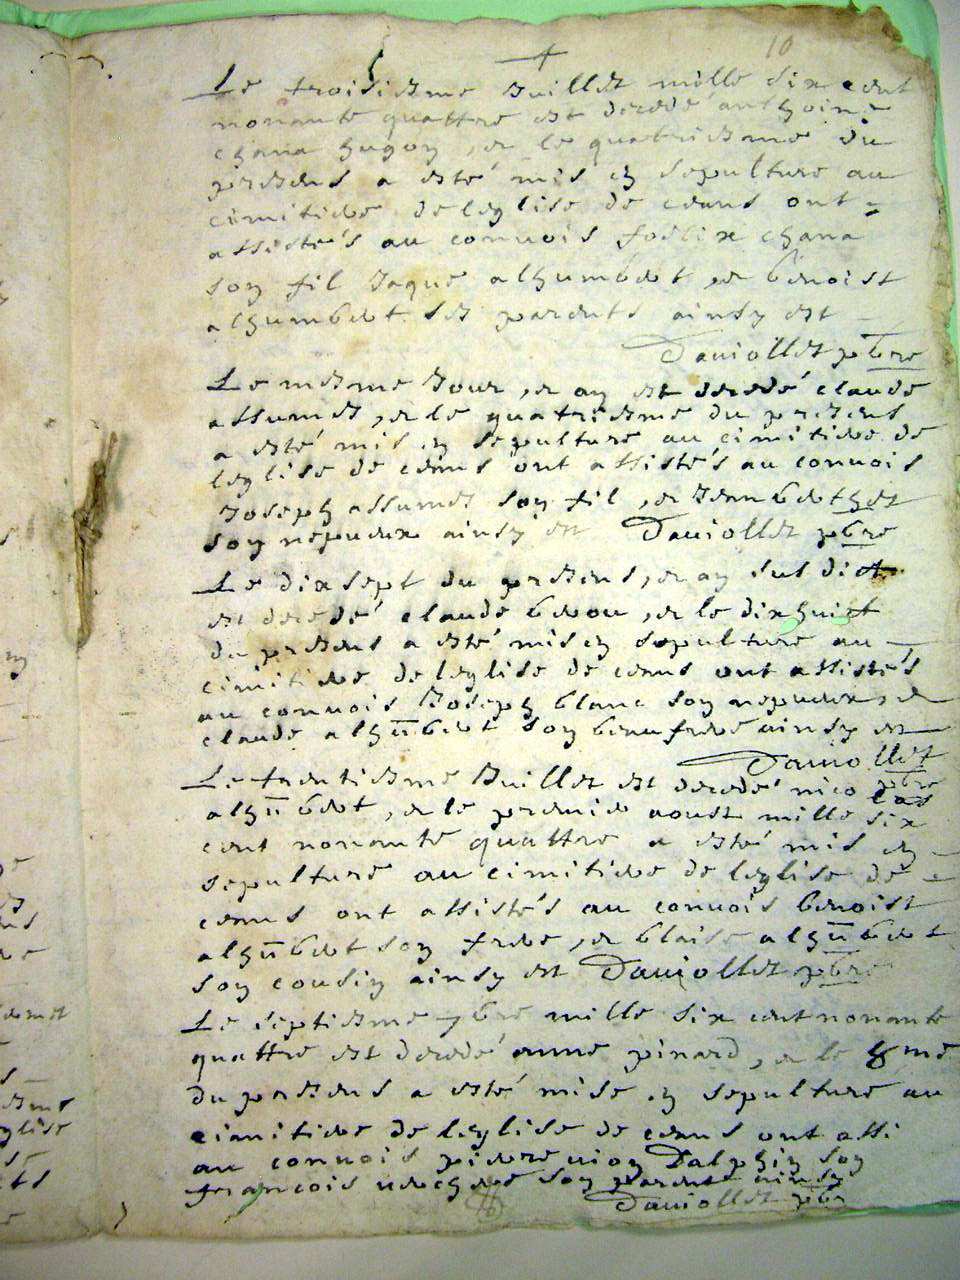 10
Le troisiesme Juillet mille six cent
nonante quattre est decedé anthoine
chana hugon, et le quatriesme du
presens a esté mis en sepulture au
cimitiere de leglise de ceans ont
assistés au conuois foelix chana
son fil Jaque alhumbert, et benoist
alhumbert ses parents ainsy est
Dauiollet pbre
Le mesme Jour, et an est decedé claude
assumes, et le quatriesme du presens
a esté mis en sepulture au cimitiere de
leglise de ceans ont assistés au conuois
Joseph assumes son fil, et Jean berthet
son nepueux ainsy est Dauiollet pbre
Le dix sept du presens, et an sus dict
est decedé claude berou, et le dixhuict
du presens a esté mis en sepulture au
cimitiere de leglise de ceans ont assistés
au conuois Joseph blanc son nepueux, et
claude alhūbert son beaufrere ainsy est
Dauiollet
pbre
Le trentiesme Juillet est decedé nicolas
alhūbert, et le premier aoust mille six
cent nonante quattre a esté mis en
sepulture au cimitiere de leglise de
ceans ont assistés au conuois benoist
alhūbert son frere, et blaise alhūbert
son cousin ainsy est Dauiollet pbre
Le septiesme 7bre mille six cent nonante
quattre est decedé anne pinard, et le 8me
du presens a esté mise en sepulture au
cimitiere de leglise de ceans ont assi
au conuois pierre uion Dalphin son
francois uerchere son parent ainsy
Dauiollet pbr